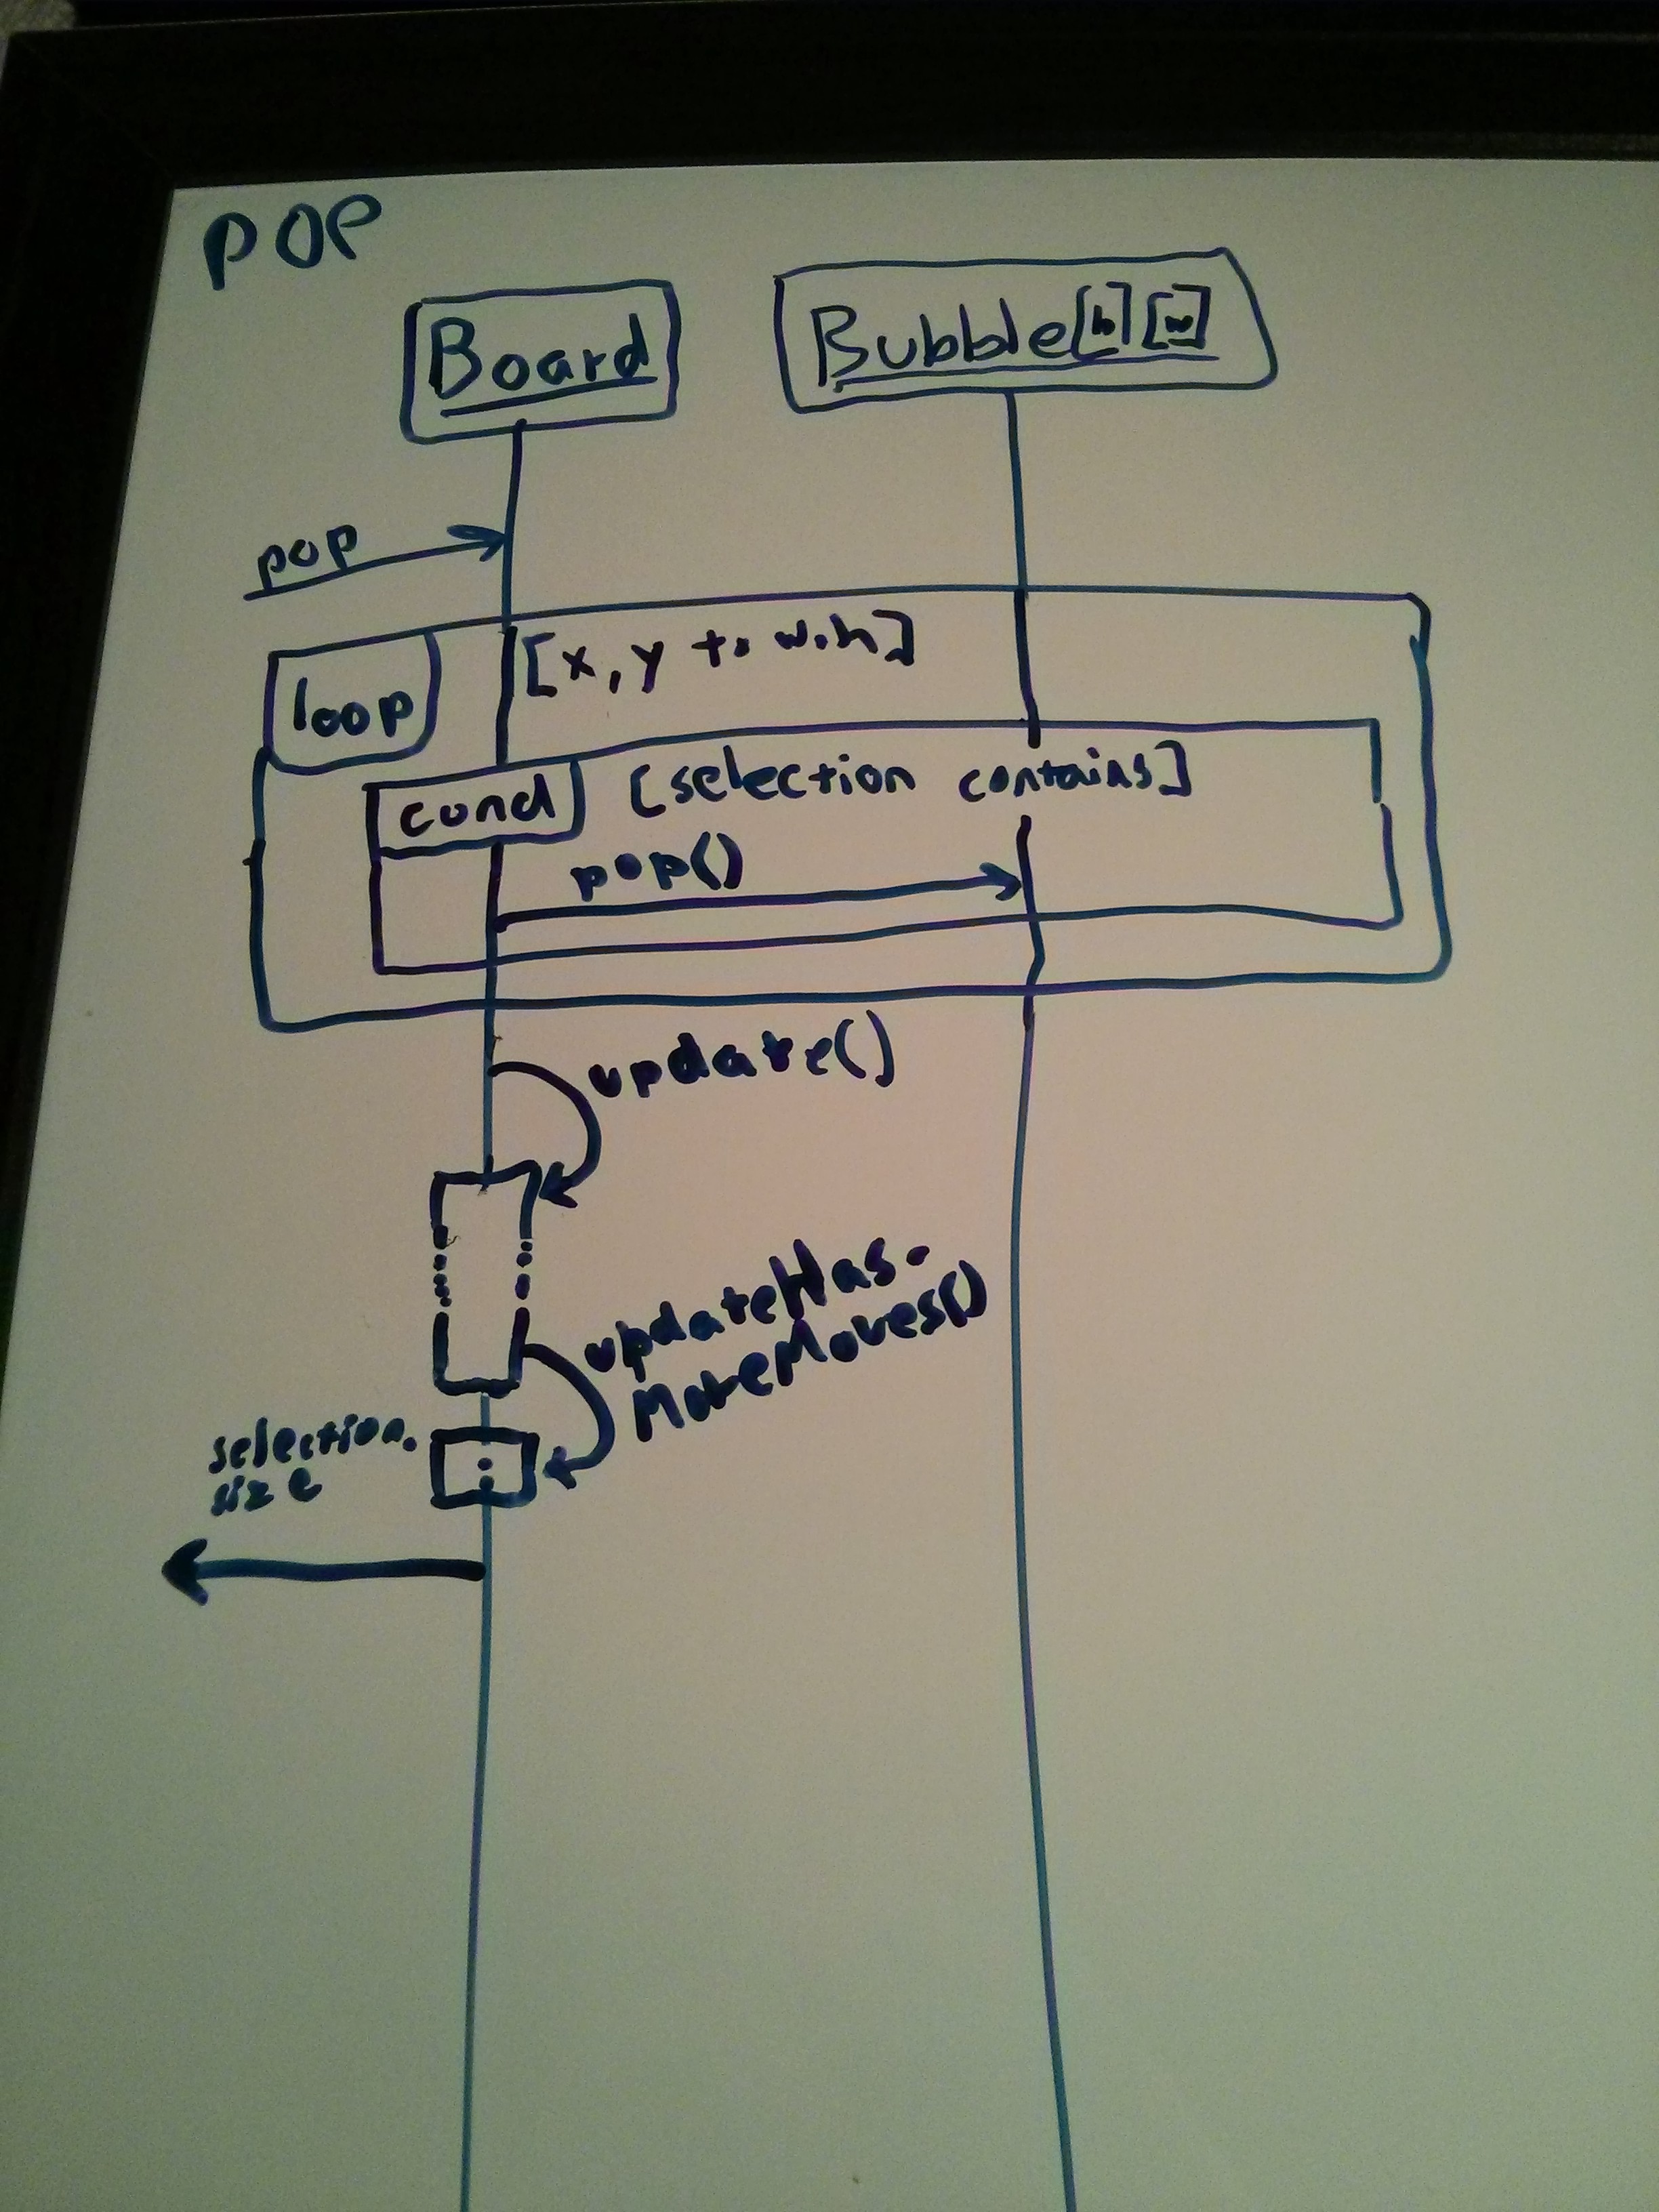 POP
Board
Bubble[h][w]
pop
loop
[x, y to w.h]
cond
[selection contains]
pop()
update()
updateHas-
MoreMoves()
selection.
size